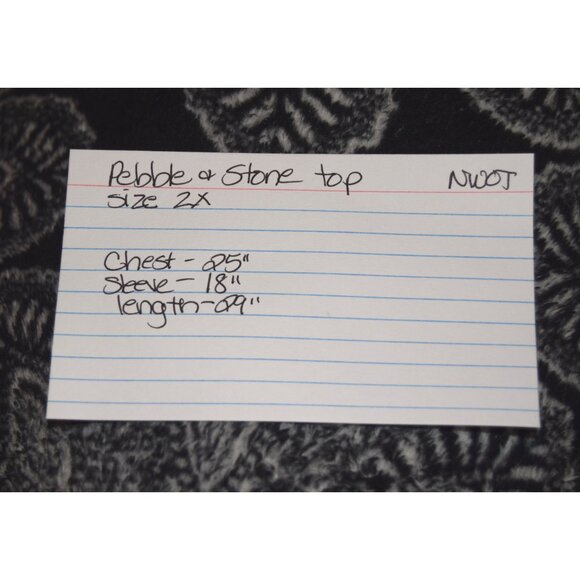 Pebble & Stone top NWOT
size 2X
Chest - 25"
Sleeve - 18"
length - 29"